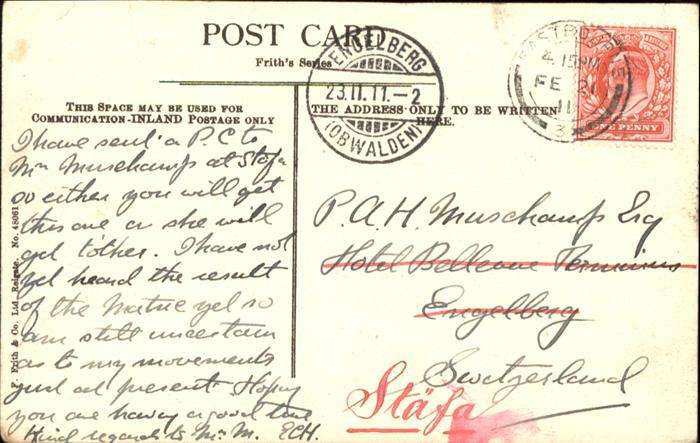 POST CARD
Frith's Series
THIS SPACE MAY BE USED FOR
COMMUNICATION-INLAND POSTAGE ONLY
THE ADDRESS ONLY TO BE WRITTEN
HERE.
ENGELBERG
23.II.11.-2
(OBWALDEN)
4.15PM
FE 21
11
ONE PENNY
I have sent a P.C to
Mrs Muschamp at Stafa
so either you will get
this one or she will
get tother. I have not
yet heard the result
of the Matric yet so
am still uncertain
as to my movements
just at present. Hoping
you are having a good time
Kind regards to Mrs M. ECH.
P.A.H. Muschamp Esq
Hotel Bellevue Terminus
Engelberg
Switzerland
Stäfa
F. Frith & Co. Ltd., Reigate. No. 48061